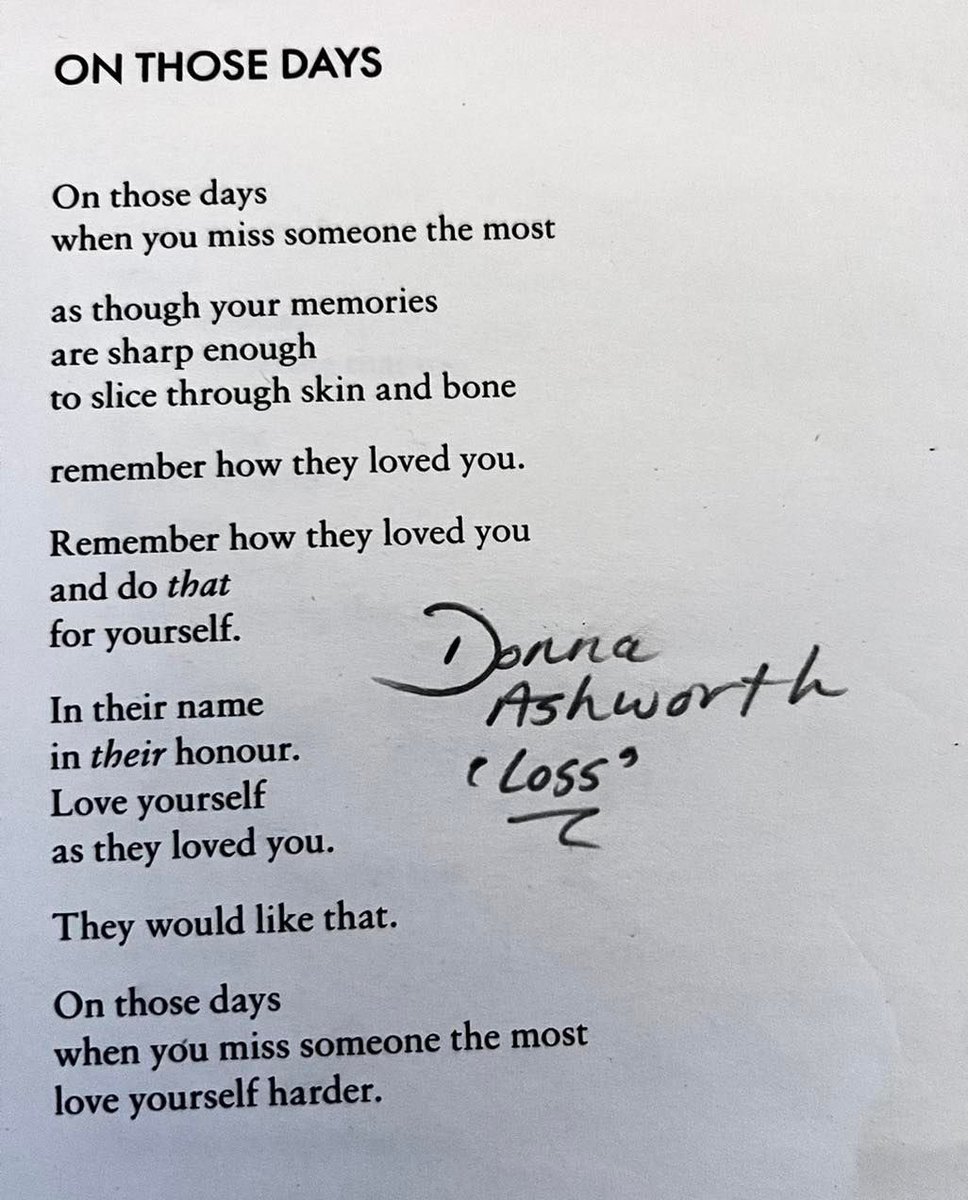 ON THOSE DAYS
On those days
when you miss someone the most
as though your memories
are sharp enough
to slice through skin and bone
remember how they loved you.
Remember how they loved you
and do that
for yourself.
In their name
in their honour.
Love yourself
as they loved you.
They would like that.
On those days
when you miss someone the most
love yourself harder.
Donna
Ashworth
‘Loss’